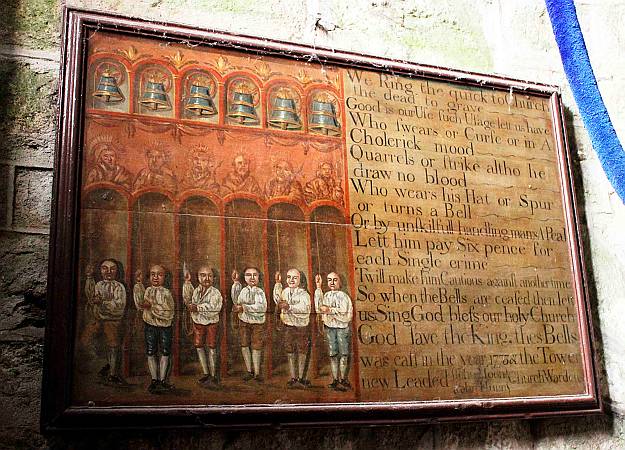 We Ring the quick to Church
the dead to grave
Good is our Use such Usage let us have
Who Swears or Curse or in A
Cholerick mood
Quarrels or strike altho he
draw no blood
Who wears his Hat or Spur
or turns a Bell
Or by unskilfull handling mars A Peal
Lett him pay Six pence for
each Single crime
Twill make him Cautious against another time
So when the Bells are ceased then let
us Sing God bless our holy Church
God save the King. thes Bells
was cast in the year 1773 & the Tower
new Leaded
Church Wardens